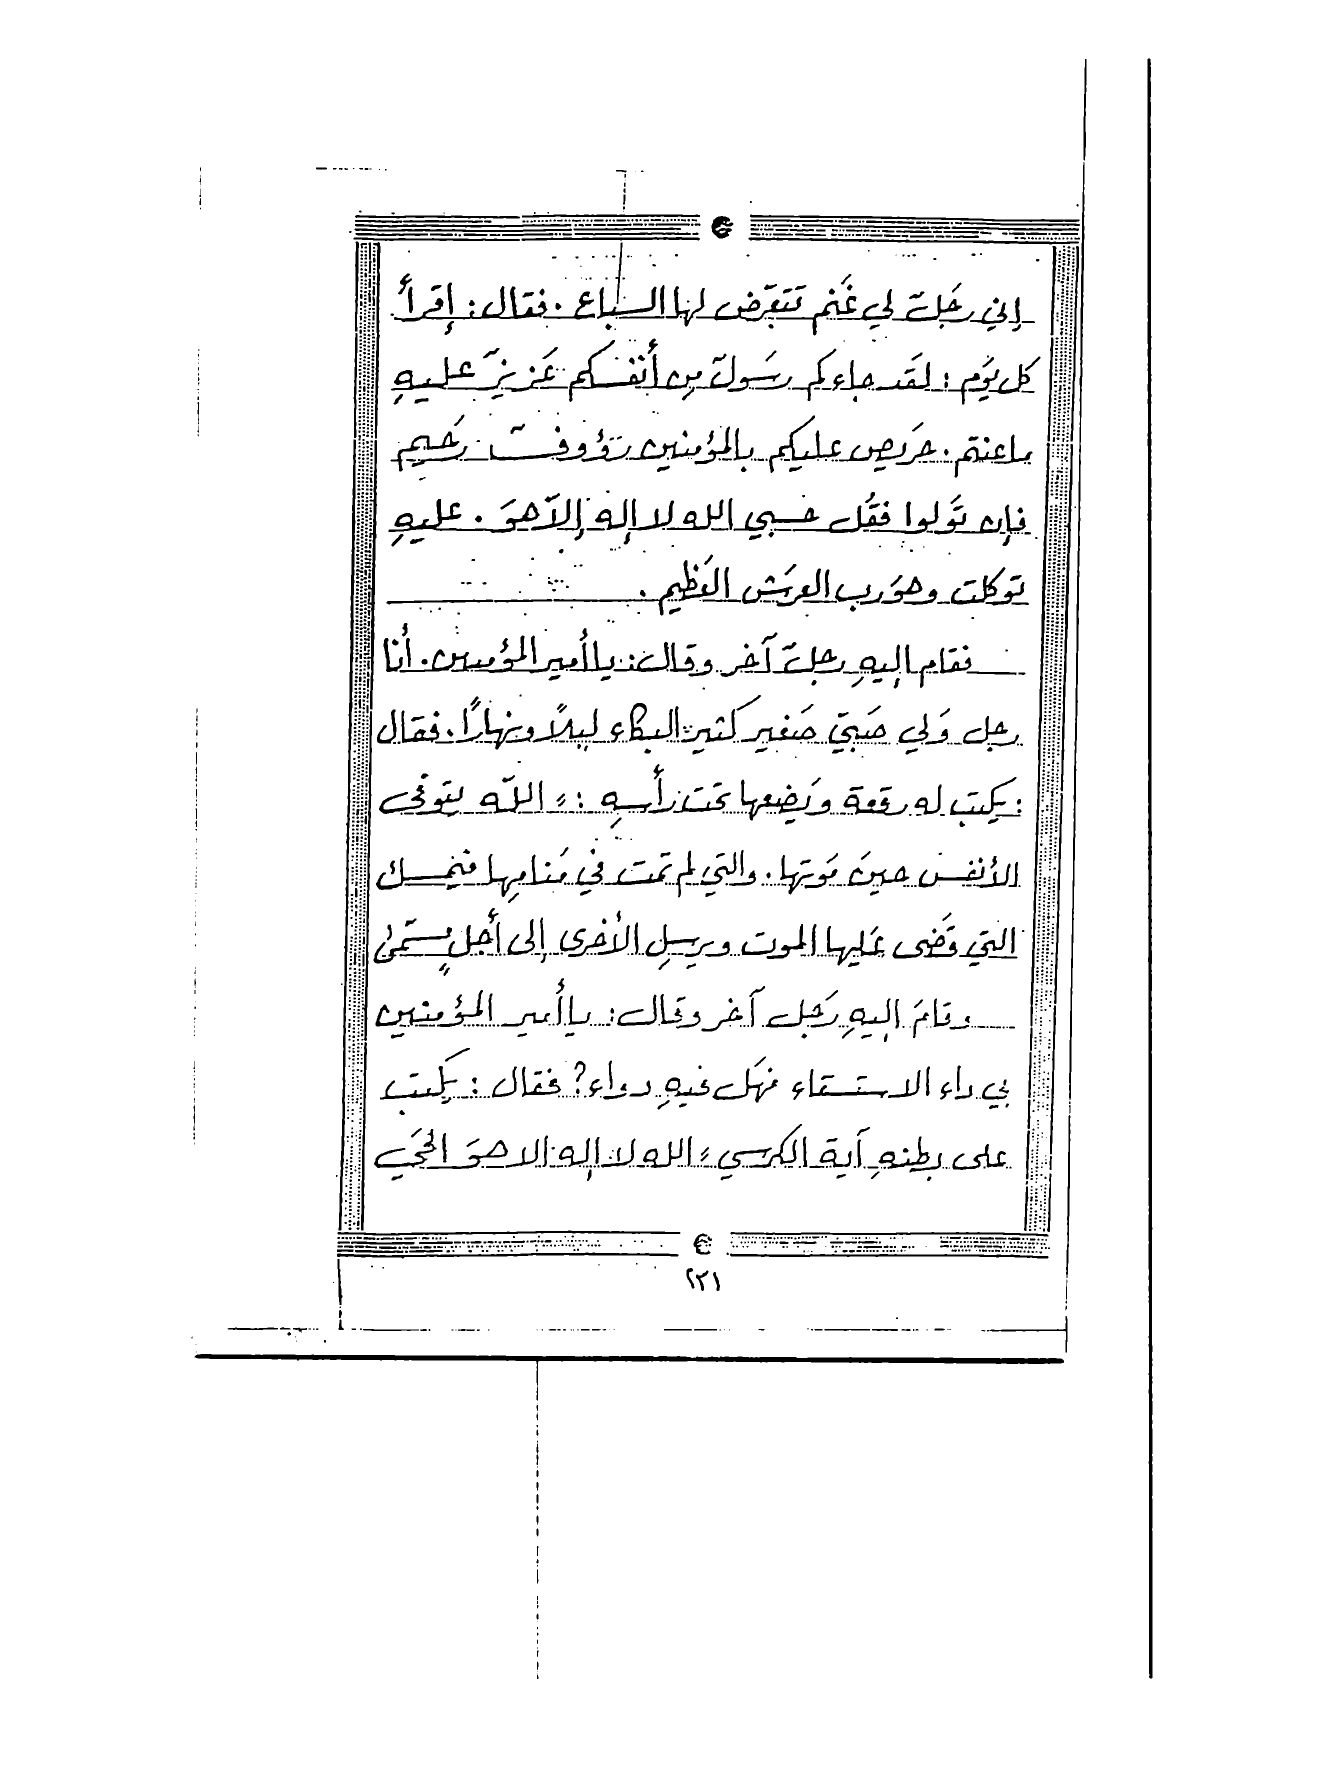 إني رجلٌ لي غنم تتعرّض لها السباع . فقال : إقرأ
كل يوم : لقد جاءكم رسولٌ من أنفسكم عزيزٌ عليهِ
ماعنتم . حريص عليكم بالمؤمنين رؤوفٌ رحيم
فإن تولوا فقل حسبي الله لا إله إلاّ هوَ . عليهِ
توكلت وهوَ رب العرش العظيم .
فقام اليهِ رجلٌ آخر وقال : يا أمير المؤمنين . أنا
رجل ولي صبيّ صغير كثير البكاء ليلاً ونهارًا . فقال
: يكتب له رقعة ويضعها تحت رأسهِ : " اللّه يتوفى
الأنفس حين موتها . والتي لم تمت في منامها فيمسك
التي قضى عليها الموت ويرسل الأخرى إلى أجلٍ مسمّىٰ "
وقامَ اليهِ رجل آخر وقال : يا أمير المؤمنين
بي داء الاستسقاء فهل فيهِ دواء ? فقال : يكتب
على بطنهِ آية الكرسي " الله لا إله الا هوَ الحيَ
٢٢١